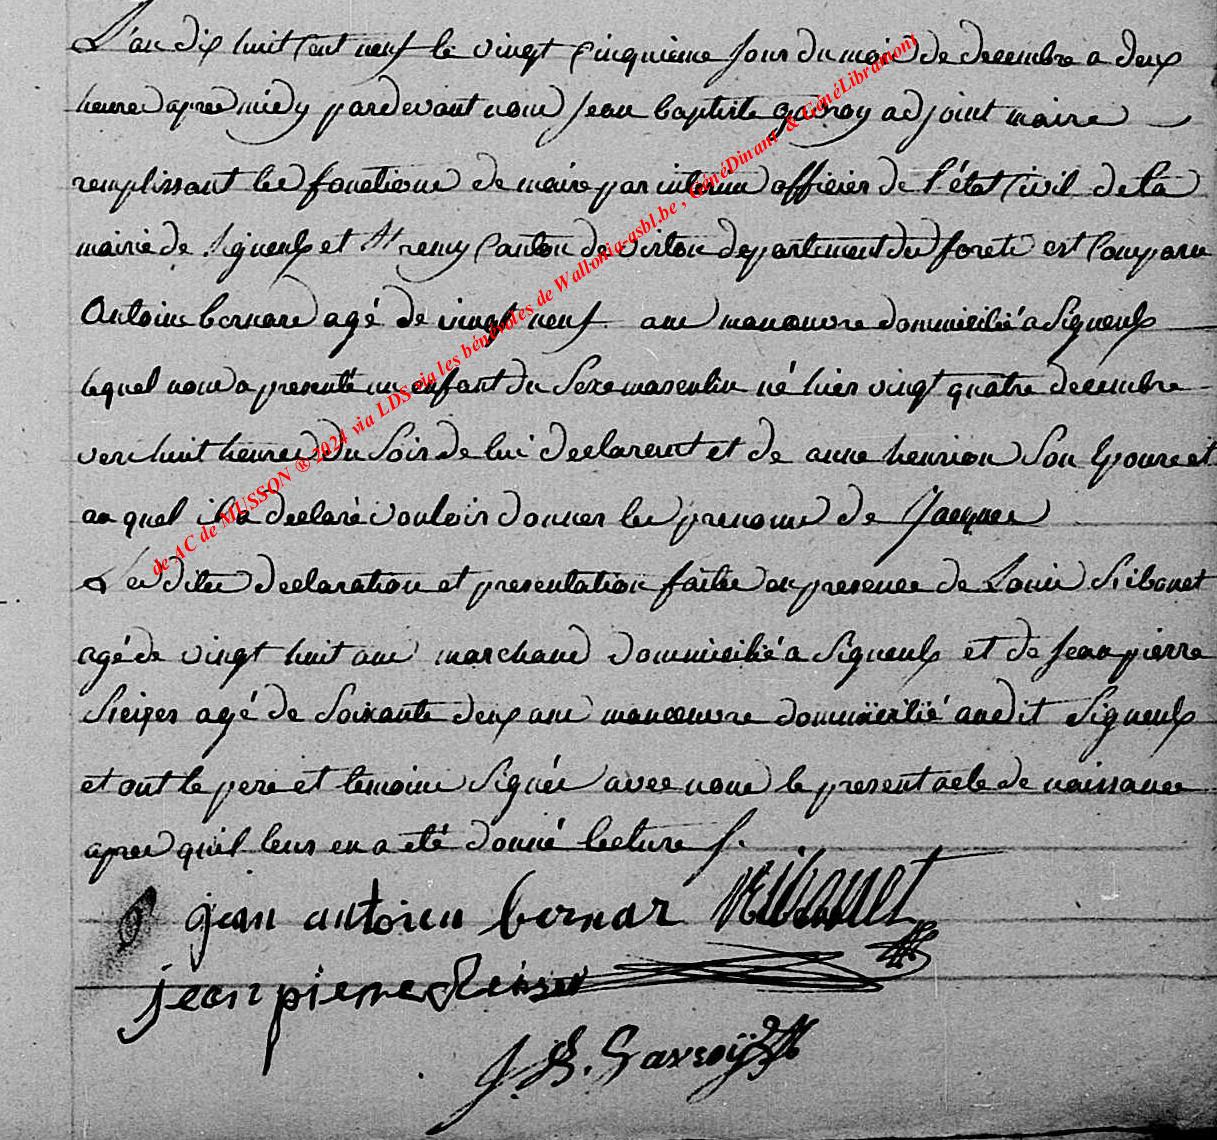 L'an dix huit cent neuf le vingt cinquieme jour du mois de decembre a deux
heures apres midy pardevant nous jean baptiste gavroy adjoint maire
remplissant les fonctions de maire par interim officier de l'état Civil de la
mairie de Signeulx et St remy Canton de virton departement du forets est Comparu
Antoine bernare agé de vingt neuf ans manoeuvre dommicilié a Signeulx
lequel nous a presenté un enfant du Sexe masculin né hier vingt quatre decembre
vers huit heures du Soir de lui declarent et de anne henrion Son Epouse et
au quel il a declaré vouloir donner les prenoms de Jacques
Les dites declaration et presentation faites en presence de Louis
agé de vingt huit ans marchand dommicilié a Signeulx et de jean pierre
agé de Soixante deux ans manoeuvre dommicilié audit Signeulx
et ont le pere et temoins Signés avec nous le present acte de naissance
apres quil leurs en a été donné lecture
jean antoien bernar
jean pierre
J. B. Gavroÿ
de AC de MUSSON ® 2024 via LDS via les bénévoles de Wallonia-asbl.be , GénéDinant & GénéLibramont